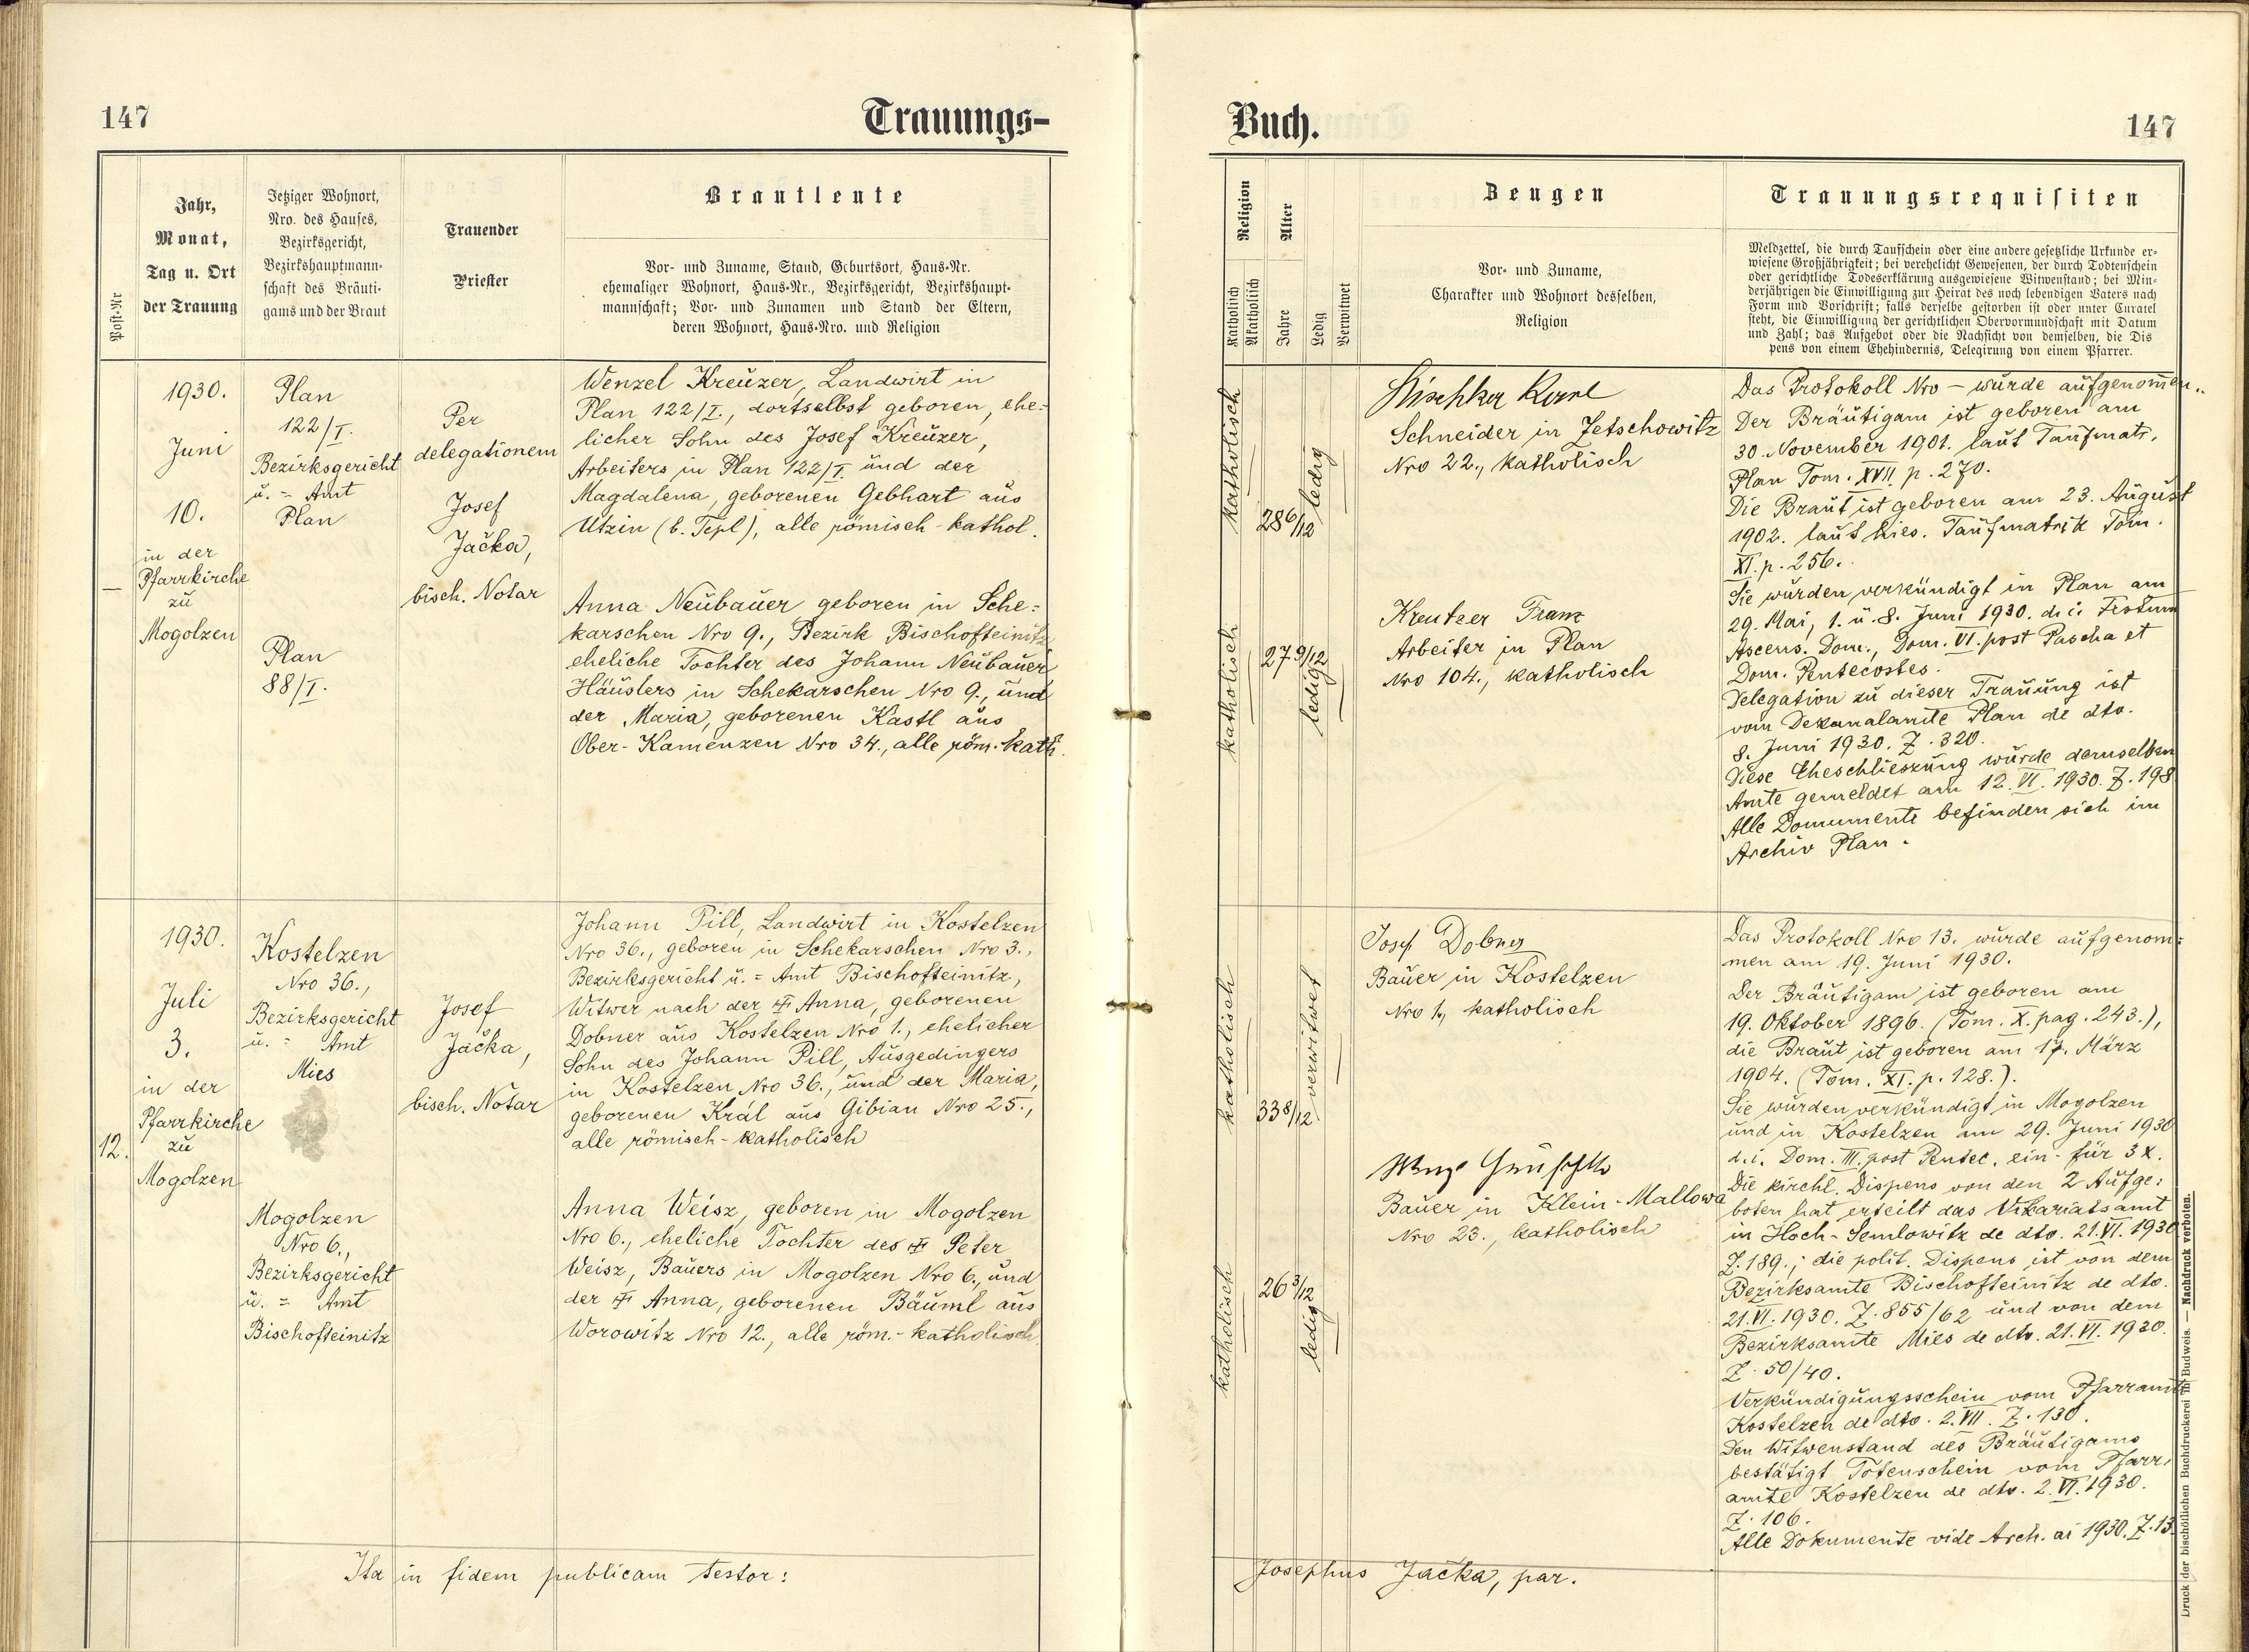 147
Trauungs-
Post-Nr
Jahr,
Monat,
Tag u. Ort
der Trauung
Jetziger Wohnort,
Nro. des Hauses,
Bezirksgericht,
Bezirkshauptmann-
schaft des Bräuti-
gams und der Braut
Trauender
Priester
Brautleute
Vor- und Zuname, Stand, Geburtsort, Haus-Nr.
ehemaliger Wohnort, Haus-Nr., Bezirksgericht, Bezirkshaupt-
mannschaft; Vor- und Zunamen und Stand der Eltern,
deren Wohnort, Haus-Nro. und Religion
—
1930.
Juni
10.
in der
Pfarrkirche
zu
Mogolzen
Plan
122/I.
Bezirksgericht
u. = Amt
Plan
Plan
88/I.
Per
delegationem
Josef
Jačka,
bisch. Notar
Wenzel Kreuzer, Landwirt in
Plan 122/I., dortselbst geboren, ehe=
licher Sohn des Josef Kreuzer,
Arbeiters in Plan 122/I. und der
Magdalena, geborenen Gebhart aus
Utzin (b. Tepl), alle römisch-kathol.
Anna Neubauer geboren in Sche=
karschen Nro 9., Bezirk Bischofteinitz
eheliche Tochter des Johann Neubauer
Häuslers in Schekarschen Nro 9., und
der Maria, geborenen Kastl aus
Ober-Kamenzen Nro 34., alle röm.-kath.
12.
1930.
Juli
3.
in der
Pfarrkirche
zu
Mogolzen
Kostelzen
Nro 36.,
Bezirksgericht
u. = Amt
Mies
Mogolzen
Nro 6.,
Bezirksgericht
u. = Amt
Bischofteinitz
Josef
Jačka,
bisch. Notar
Johann Pill, Landwirt in Kostelzen
Nro 36., geboren in Schekarschen Nro 3.,
Bezirksgericht u. = Amt Bischofteinitz,
Witwer nach der ✝ Anna, geborenen
Dobner aus Kostelzen Nro 1., ehelicher
Sohn des Johann Pill, Ausgedingers
in Kostelzen Nro 36., und der Maria,
geborenen Král aus Gibian Nro 25.,
alle römisch-katholisch
Anna Weisz, geboren in Mogolzen
Nro 6., eheliche Tochter des ✝ Peter
Weisz, Bauers in Mogolzen Nro 6., und
der ✝ Anna, geborenen Bäuml aus
Worowitz Nro 12., alle röm.-katholisch
Ita in fidem publicam testor:
Buch.
147
Religion
Katholisch
Akatholisch
Alter
Jahre
Ledig
Verwitwet
Zeugen
Vor- und Zuname,
Charakter und Wohnort desselben,
Religion
Trauungsrequisiten
Meldzettel, die durch Taufschein oder eine andere gesetzliche Urkunde er-
wiesene Großjährigkeit; bei verehelicht Gewesenen, der durch Todtenschein
oder gerichtliche Todeserklärung ausgewiesene Witwenstand; bei Min-
derjährigen die Einwilligung zur Heirat des noch lebendigen Vaters nach
Form und Vorschrift; falls derselbe gestorben ist oder unter Curatel
steht, die Einwilligung der gerichtlichen Obervormundschaft mit Datum
und Zahl; das Aufgebot oder die Nachsicht von demselben, die Dis
pens von einem Ehehindernis, Delegirung von einem Pfarrer.
katholisch
28 6/12
ledig
Karl
Schneider in Zetschowitz
Nro 22., katholisch
katholisch
27 9/12
ledig
Kreutzer Franz
Arbeiter in Plan
Nro 104., katholisch
Das Protokoll Nro — wurde aufgenom̄en..
Der Bräutigam ist geboren am
30. November 1901. laut Taufmatr.
Plan Tom. XVII. p. 270.
Die Braut ist geboren am 23. August
1902. laut hies. Taufmatrik Tom.
XI. p. 256.
Sie wurden verkündigt in Plan am
29. Mai, 1. u. 8. Juni 1930. d. i. Festum
Ascens. Dom., Dom. VI. post Pascha et
Dom. Pentecostes.
Delegation zu dieser Trauung ist
vom Dekanalamte Plan de dto.
8. Juni 1930. Z. 320.
Diese Eheschlieszung wurde demselben
Amte gemeldet am 12. VI. 1930. Z. 198
Alle Domumente befinden sich im
Archiv Plan.
katholisch
33 8/12
verwitwet
Josef Dobner
Bauer in Kostelzen
Nro 1., katholisch
katholisch
26 3/12
ledig
Bauer in Klein-Mallowa
Nro 23., katholisch
Das Protokoll Nro 13. wurde aufgenom=
men am 19. Juni 1930.
Der Bräutigam ist geboren am
19. Oktober 1896. (Tom. X. pag. 243.),
die Braut ist geboren am 17. März
1904. (Tom. XI. p. 128.).
Sie wurden verkündigt in Mogolzen
und in Kostelzen am 29. Juni 1930
d. i. Dom. III. post Pentec. ein- für 3 x.
Die kirchl. Dispens von den 2 Aufge=
boten hat erteilt das Vikariatsamt
in Hoch-Semlowitz de dto. 21. VI. 1930
Z. 189.; die polit. Dispens ist von dem
Bezirksamte Bischofteinitz de dto.
21. VI. 1930. Z. 855/62 und von dem
Bezirksamte Mies de dto. 21. VI. 1930.
Z. 50/40.
Verkündigungsschein vom Pfarramte
Kostelzen de dto. 2. VII. Z. 130.
Den Witwenstand des Bräutigams
bestätigt Totenschein vom Pfarr=
amte Kostelzen de dto. 2. VI. 1930.
Z. 106.
Alle Dokumente vide Arch. ai 1930. Z. 13.
Josephus Jačka, par.
Druck der bischöflichen Buchdruckerei in Budweis. — Nachdruck verboten.